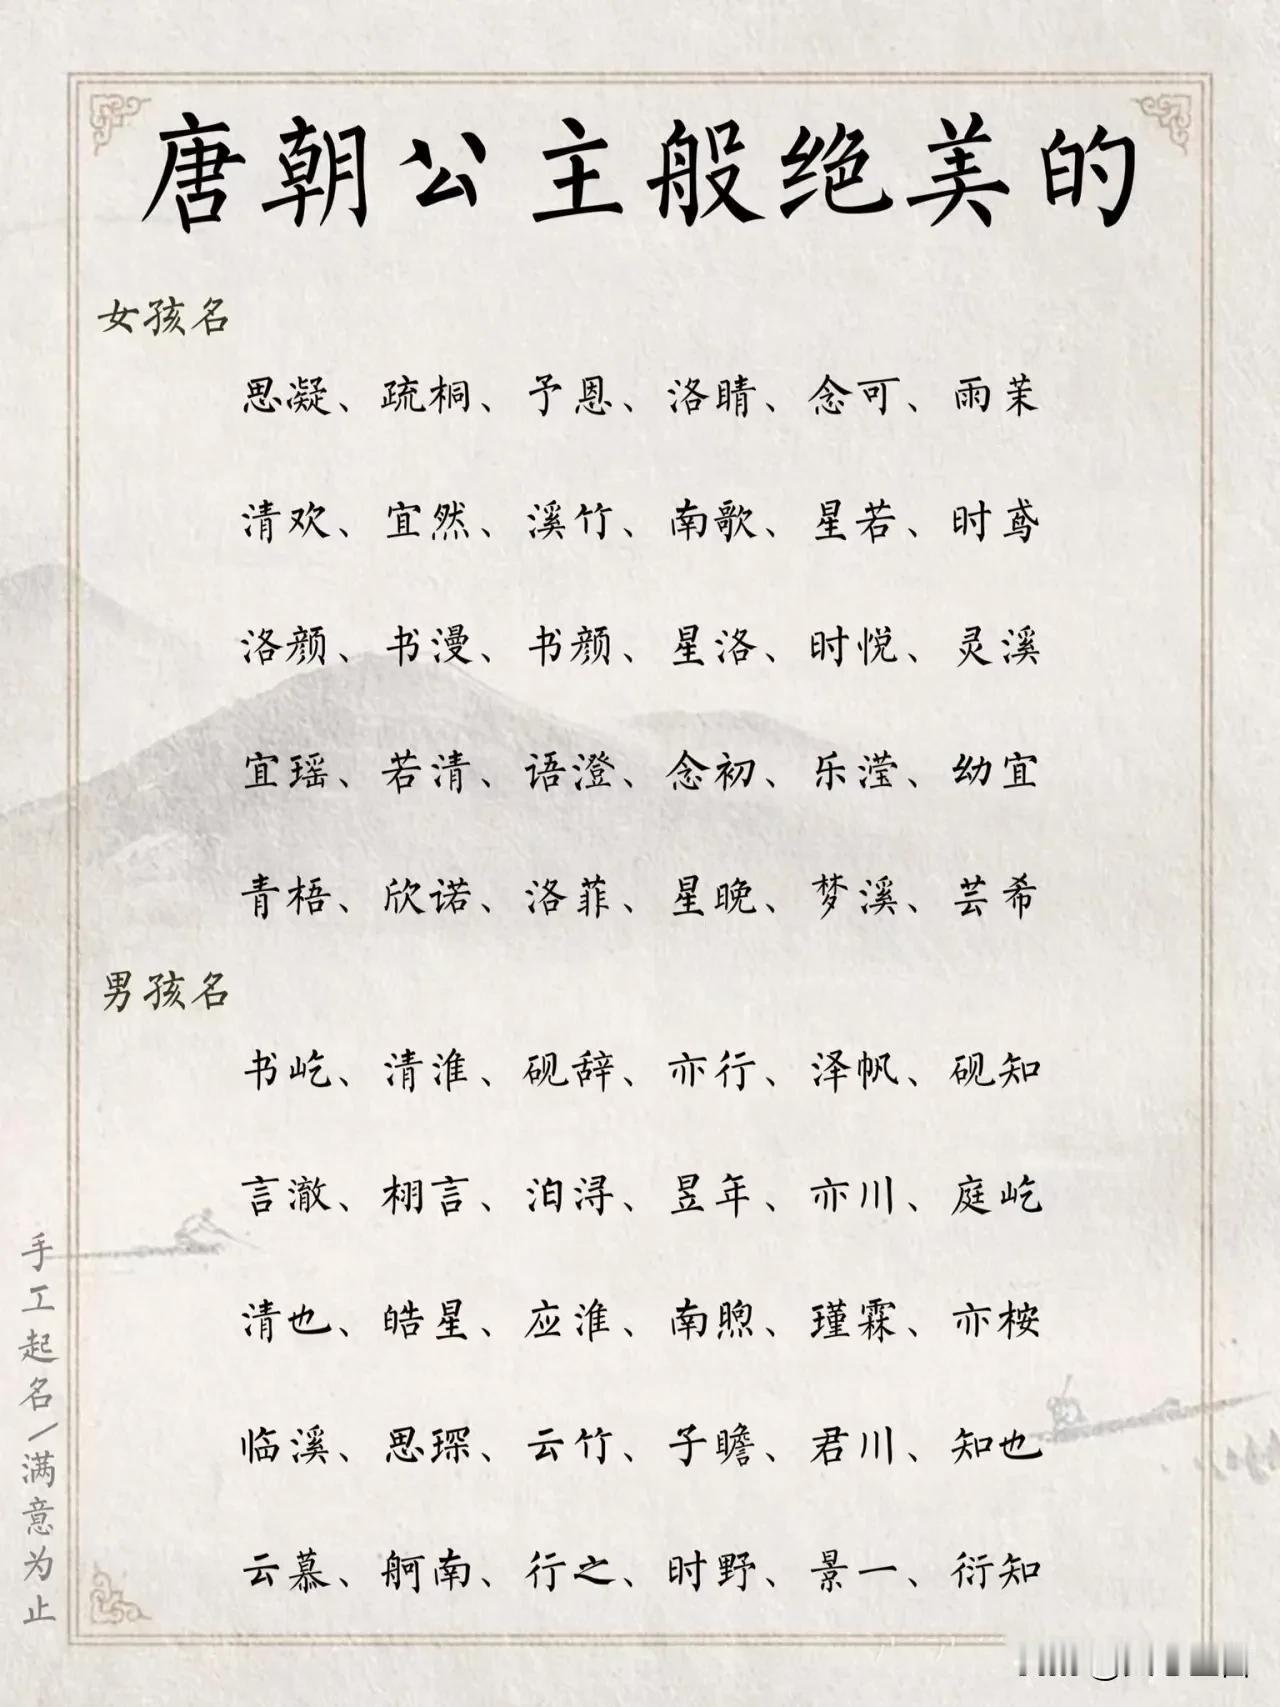 唐朝公主般绝美的
女孩名
思凝、疏桐、予恩、洛晴、念可、雨茉
清欢、宜然、溪竹、南歌、星若、时鸢
洛颜、书漫、书颜、星洛、时悦、灵溪
宜瑶、若清、语澄、念初、乐滢、幼宜
青梧、欣诺、洛菲、星晚、梦溪、芸希
男孩名
书屹、清淮、砚辞、亦行、泽帆、砚知
言澈、栩言、泊浔、昱年、亦川、庭屹
清也、皓星、应淮、南煦、瑾霖、亦桉
临溪、思琛、云竹、子瞻、君川、知也
云慕、舸南、行之、时野、景一、衍知
手工起名/满意为止